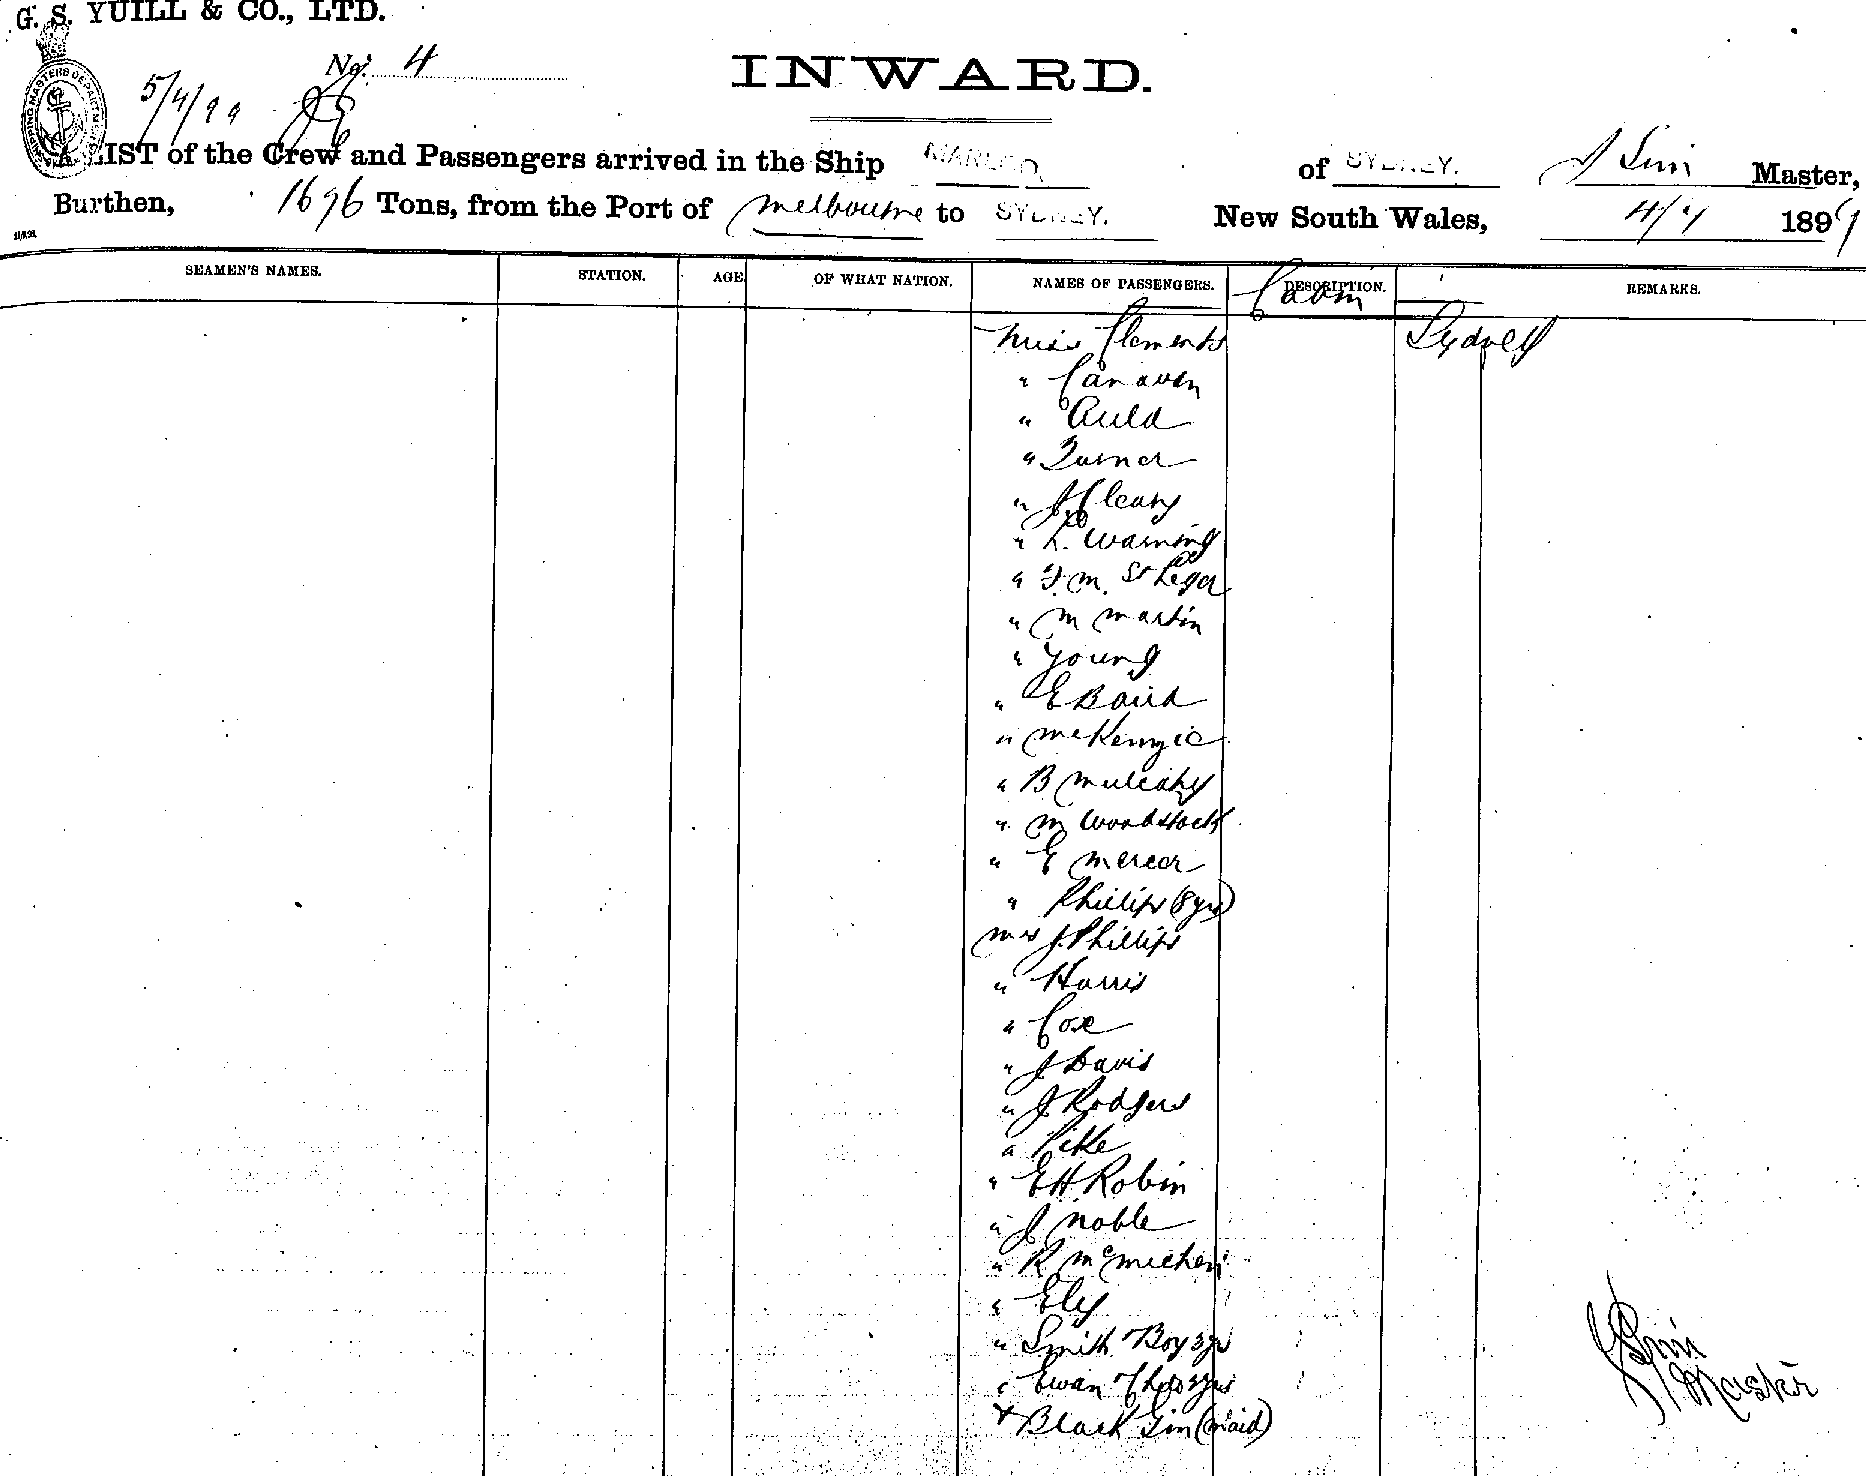 G. S. YUILL & CO., LTD.
No. 4
INWARD.
5/4/99
A LIST of the Crew and Passengers arrived in the Ship MARLOO of SYDNEY. J Sim Master,
Burthen, 1696 Tons, from the Port of Melbourne to SYDNEY. New South Wales, 4/4 1899
SEAMEN'S NAMES. STATION. AGE OF WHAT NATION. NAMES OF PASSENGERS. DESCRIPTION. REMARKS.
Cabin
Miss Clements Sydney
" Canavan
" Auld
" Turner
" J Cleary
" L. Warning
" F. M. St Leger
" M Martin
" Young
" E Baird
" McKenzie
" B Mulcahy
" M Woodstock
" E Mercer
" Phillips (8 yrs)
Mrs J. Phillips
" Harris
" Cox
" J Davis
" J Rodgers
" Pike
" E H Robin
" J Noble
" R McMicken
" Ely
" Smith + Boy 3 yrs
" Ewan
+ Black Gin (maid)
J Sim
Master